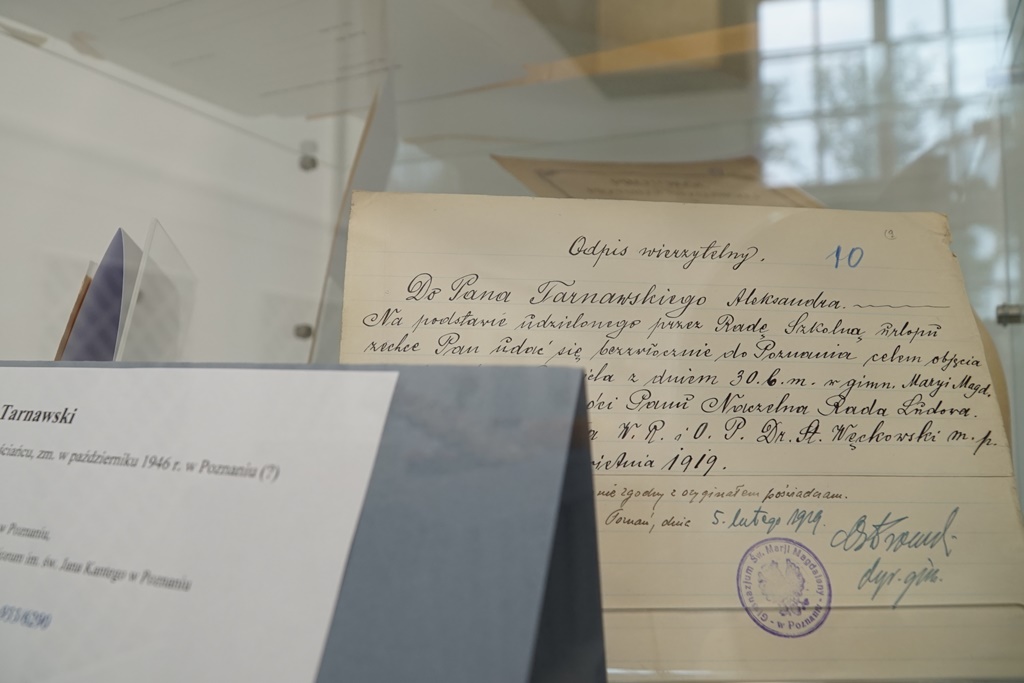 Odpis wierzytelny.
10
Do Pana Tarnawskiego Aleksandra.
Na podstawie udzielonego przez Radę Szkolną urlopu
zechce Pan udać się bezzwłocznie do Poznania celem objęcia
z dniem 30. b. m. w gimn. Maryi Magd.
Panu Naczelna Rada Ludowa.
W. R. i O. P. Dr. St. Węckowski m. p.
1919.
zgodny z oryginałem poświadczam.
Poznań, dnia 5. lutego 1929.
dyr. gim.
Gimnazjum Św. Marji Magdaleny
w Poznaniu
Tarnawski
zm. w październiku 1946 r. w Poznaniu (?)
w Poznaniu,
im. św. Jana Kantego w Poznaniu